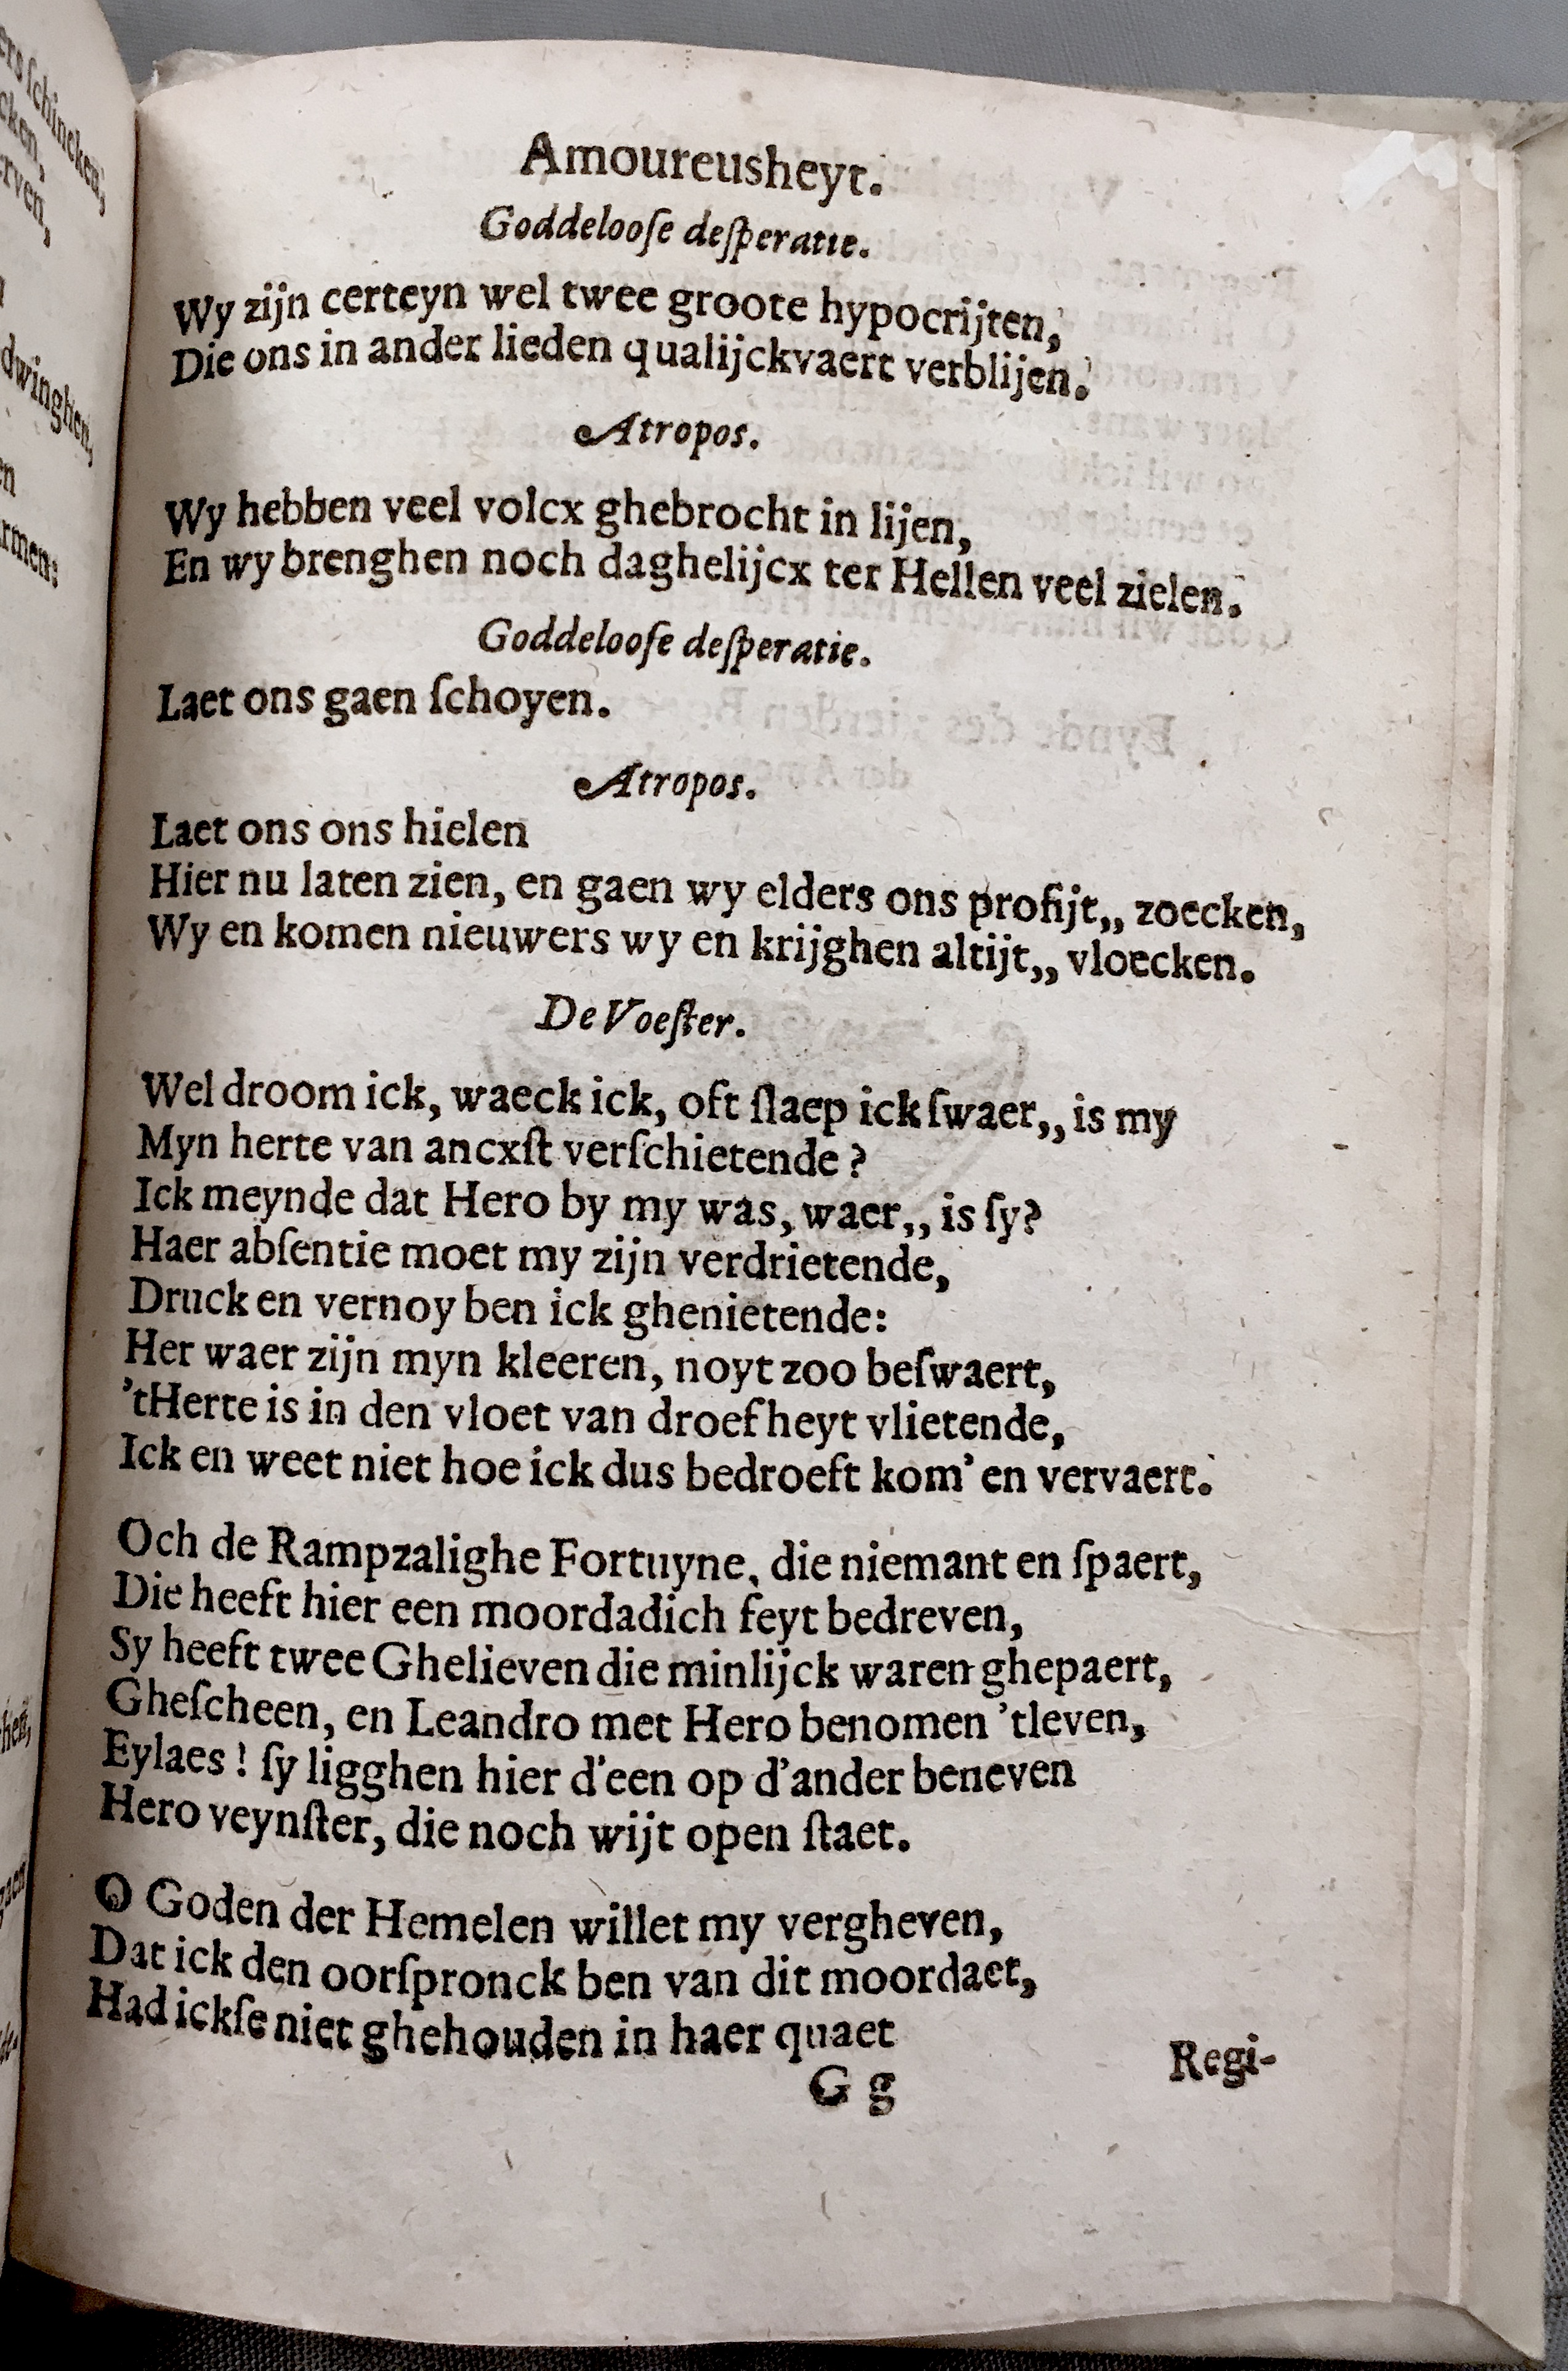 Amoureusheyt.
Goddelooſe deſperatie.
Wy zijn certeyn wel twee groote hypocrijten,
Die ons in ander lieden qualijckvaert verblijen.
Atropos.
Wy hebben veel volcx ghebrocht in lijen,
En wy brenghen noch daghelijcx ter Hellen veel zielen.
Goddelooſe deſperatie.
Laet ons gaen ſchoyen.
Atropos.
Laet ons ons hielen
Hier nu laten zien, en gaen wy elders ons profijt,, zoecken,
Wy en komen nieuwers wy en krijghen altijt,, vloecken.
De Voeſter.
Wel droom ick, waeck ick, oft ſlaep ick ſwaer,, is my
Myn herte van ancxſt verſchietende?
Ick meynde dat Hero by my was, waer,, is ſy?
Haer abſentie moet my zijn verdrietende,
Druck en vernoy ben ick ghenietende:
Her waer zijn myn kleeren, noyt zoo beſwaert,
'tHerte is in den vloet van droefheyt vlietende,
Ick en weet niet hoe ick dus bedroeft kom' en vervaert.
Och de Rampzalighe Fortuyne, die niemant en ſpaert,
Die heeft hier een moordadich feyt bedreven,
Sy heeft twee Ghelieven die minlijck waren ghepaert,
Gheſcheen, en Leandro met Hero benomen 'tleven,
Eylaes! ſy ligghen hier d'een op d'ander beneven
Hero veynſter, die noch wijt open ſtaet.
O Goden der Hemelen willet my vergheven,
Dat ick den oorſpronck ben van dit moordaet,
Had ickſe niet ghehouden in haer quaet
G g
Regi-